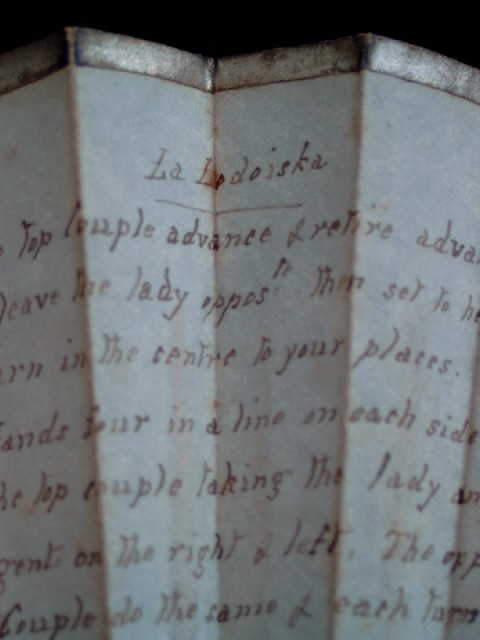 La Lodoiska
top Couple advance & retire advan
leave the lady oppos.te then set to he
urn in the centre to your places.
Hands four in a line on each side
he top couple taking the lady an
gent: on the right & left. The opp
Couple do the same & each turn